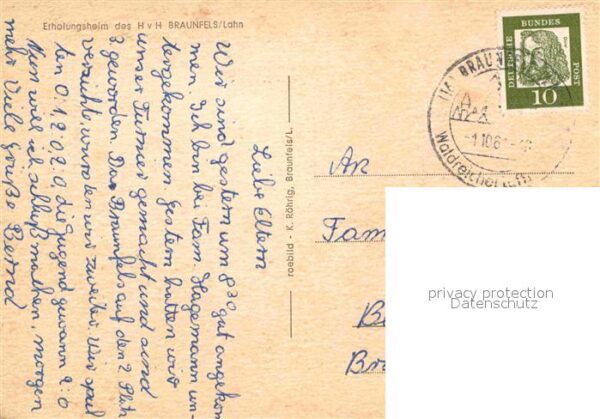 Erholungsheim des H v H BRAUNFELS/Lahn
Liebe Eltern
Wir sind gestern um 8³⁰ gut angekom
men. Ich bin bei Fam. Hagemann un-
tergekommen. Gestern hatten wir
unser Turnier gemacht und sind
3 geworden. Da Braunfels auf den 2 Platz
verzichtet wurden wir zweiter. Wir spiel
ten 0:1, 2:0, 2:0, die Jugend gewann 2:0
Nun will ich schluß machen, morgen
mehr Viele Grüße Bernd
roebild - K. Röhrig, Braunfels/L.
DEUTSCHE
BUNDES
POST
10
BRAUN
-1.10.6
An
Fam
B
Br
privacy protection
Datenschutz